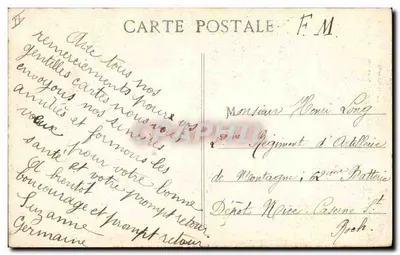 CARTE POSTALE
F M
Avec tous nos
remerciements pour vos
gentilles cartes nous vous
envoyons nos sincères
amitiés et formons les
vœux pour votre bonne
santé et votre prompt retour
A bientôt
bon courage et prompt retour
Suzanne
Germaine
Monsieur Henri Long
Régiment d'Artillerie
de Montagne; 62ème Batterie
Dépôt Nice Caserne St
Roch.